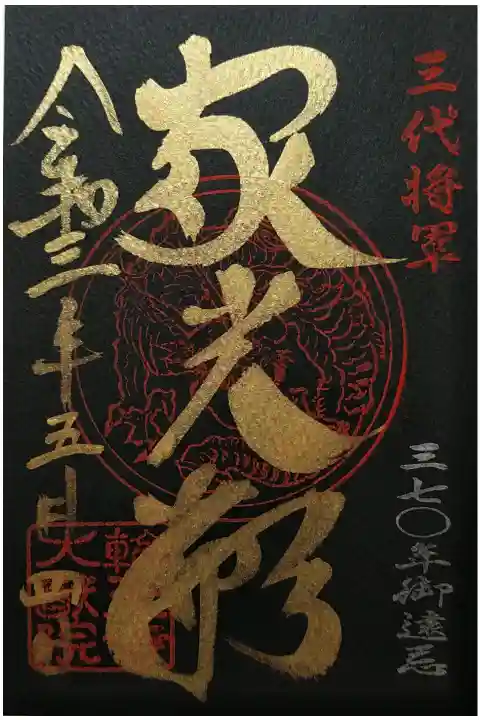 三代将軍
三七〇年御遠忌
家光廟
令和三年五月四日
輪王寺
大猷院